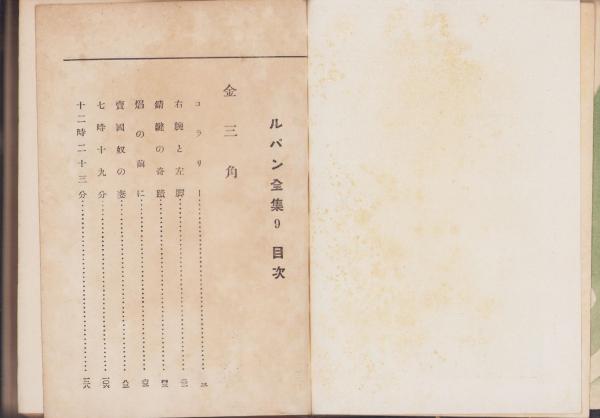 ルパン全集9 目次
金三角
コラリー
右腕と左脚
錆鍵の奇蹟
焰の前に
賣國奴の妻
七時十九分
十二時二十三分